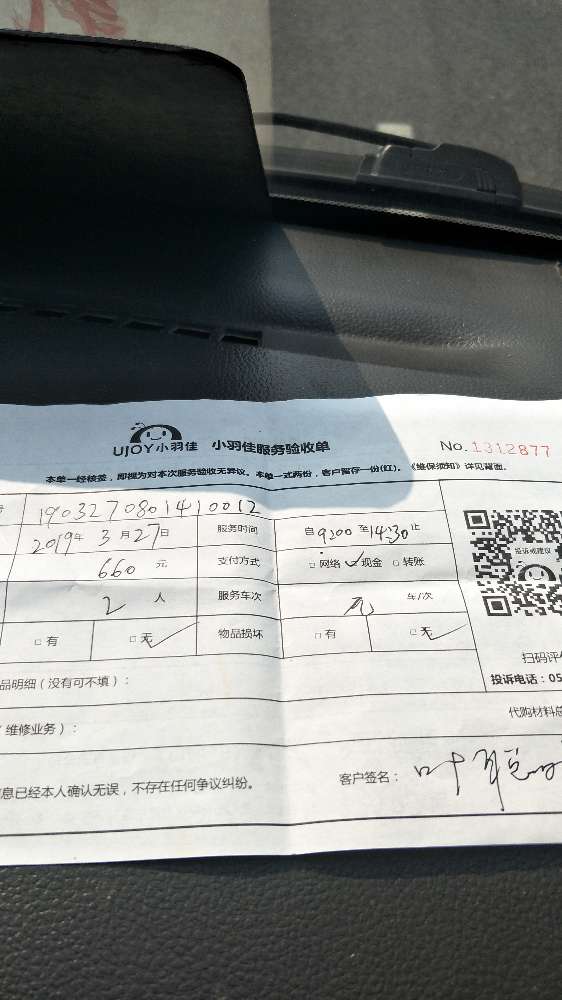 UJOY小羽佳 小羽佳服务验收单 No.1312877
本单一经核签，即视为对本次服务验收无异议。本单一式两份，客户留存一份(红)。《维保须知》详见背面。
190327080141 0012
2019年 3月27日 服务时间 自9:00至14:30止
660元 支付方式 □网络 ✓现金 □转账
2人 服务车次 车/次
□有 □无✓ 物品损坏 □有 □无✓
投诉或建议
扫码评
品明细（没有可不填）：
投诉电话：05
维修业务）：
代购材料总
息已经本人确认无误，不存在任何争议纠纷。
客户签名：叶